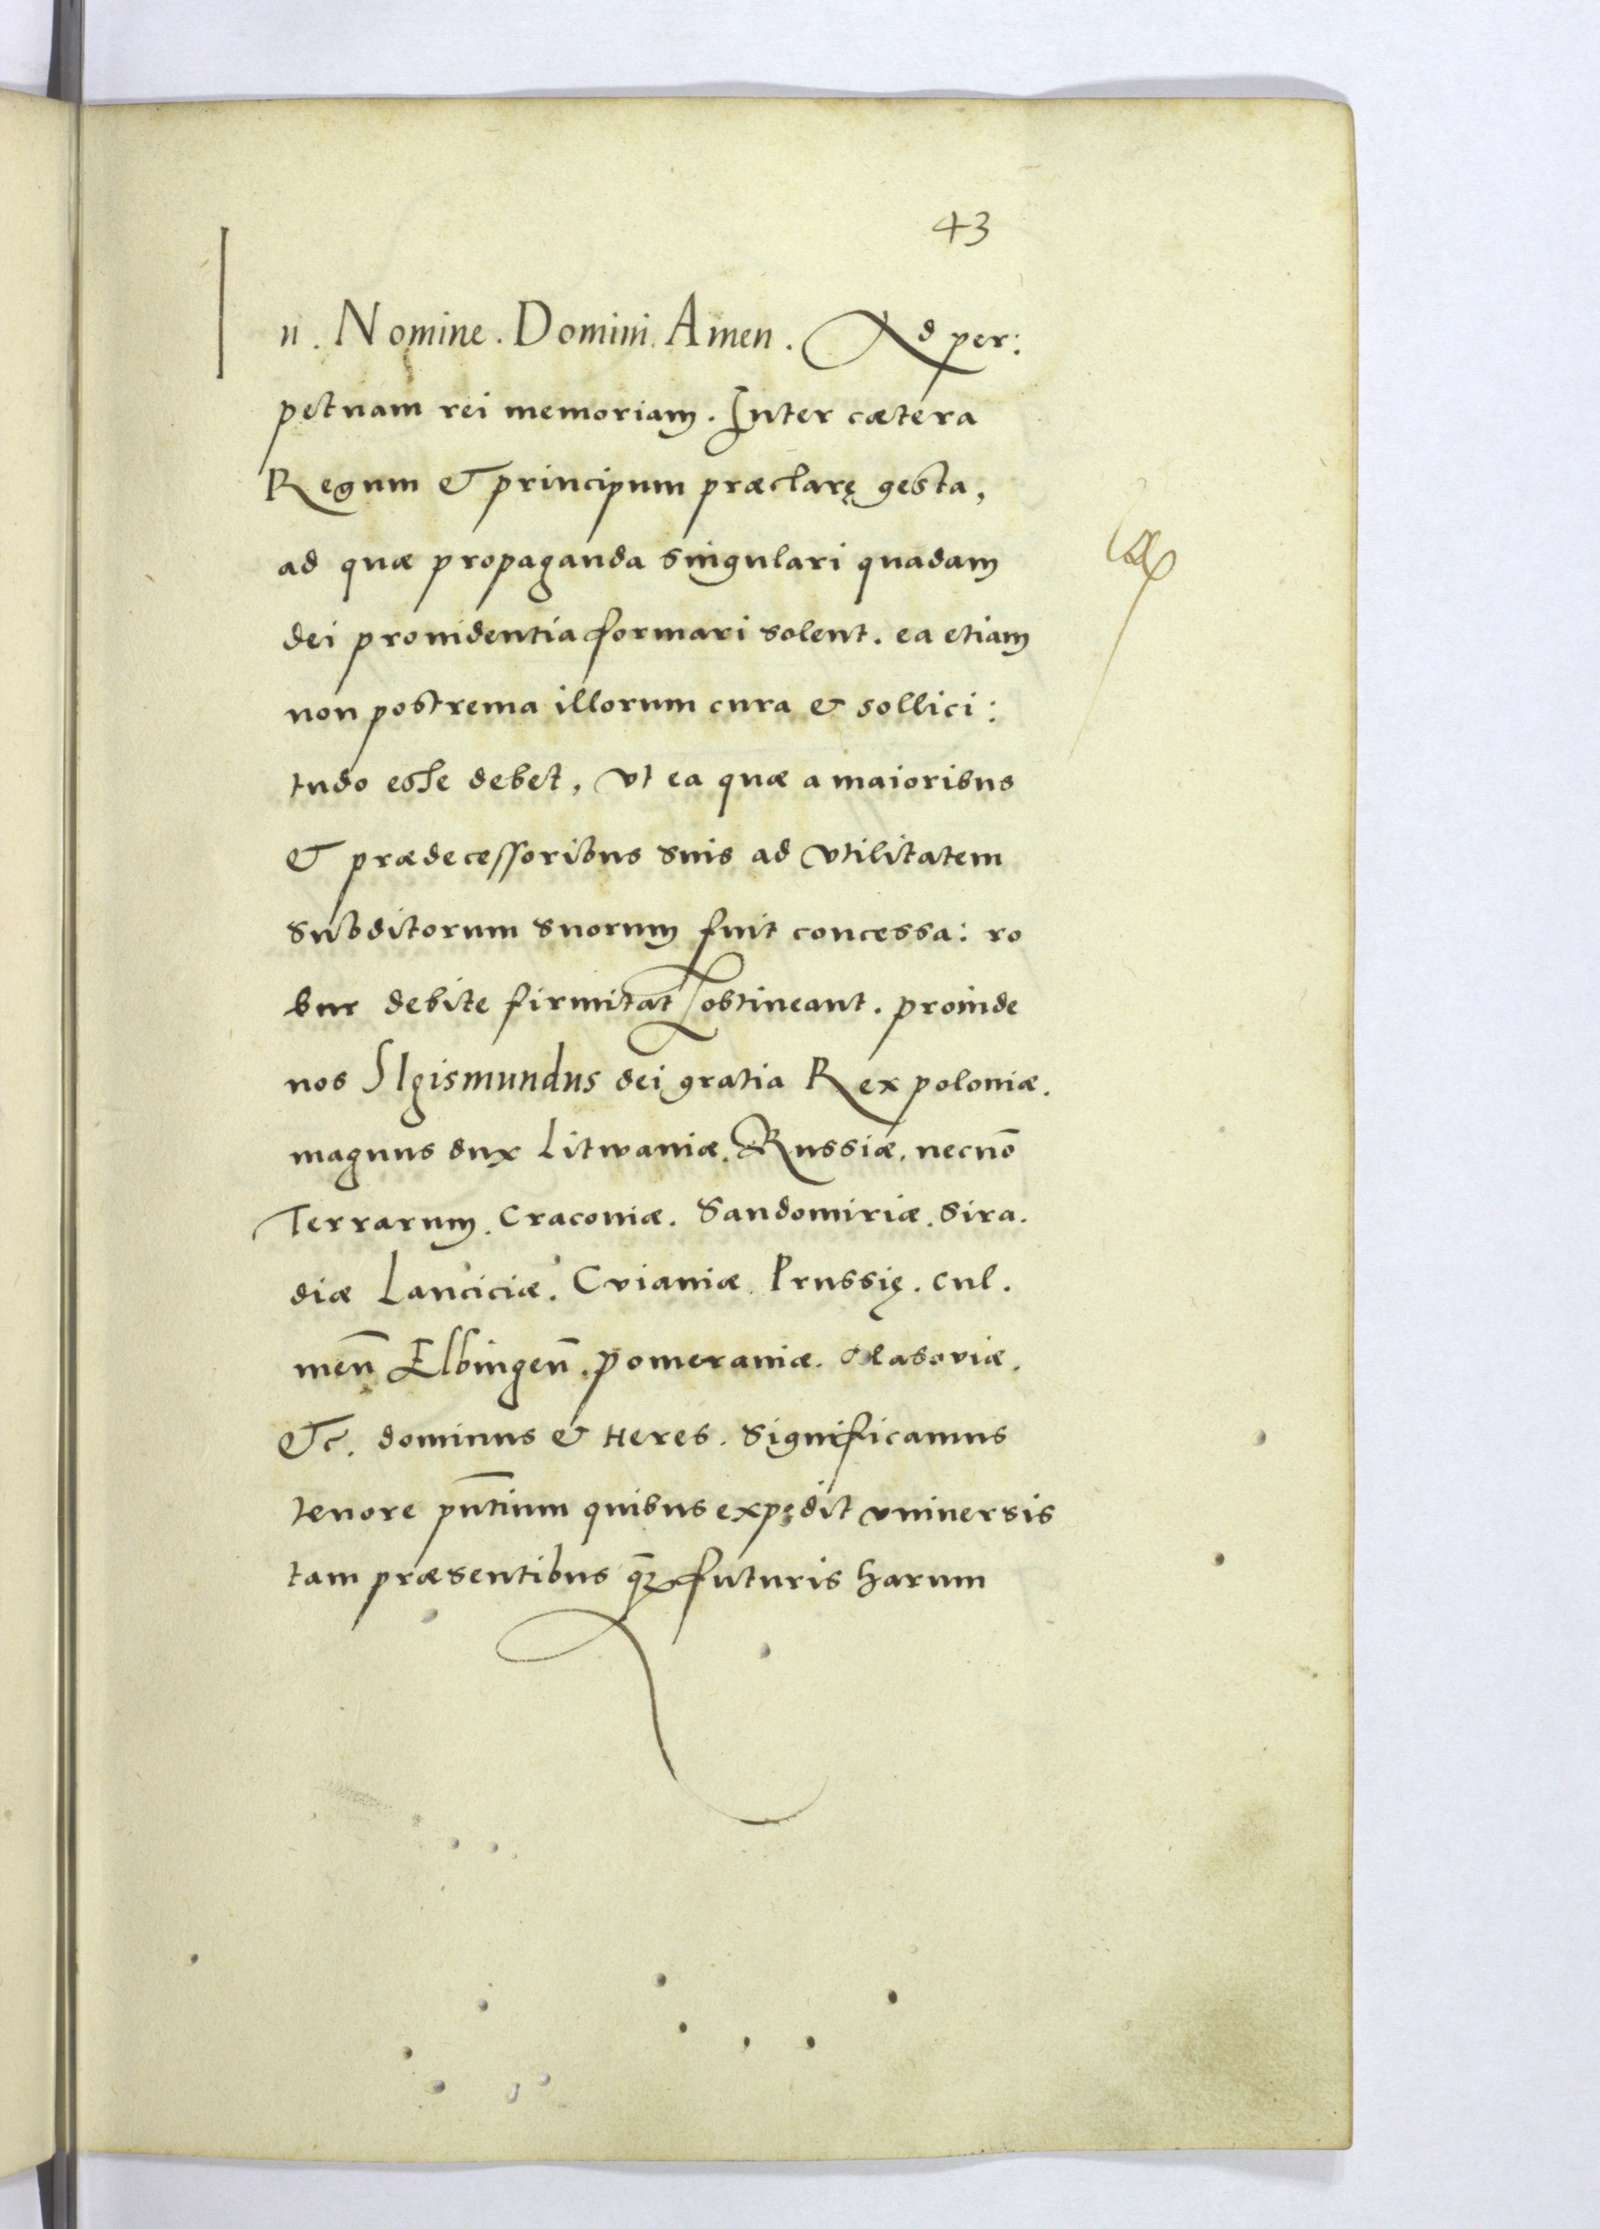 43
In. Nomine. Domini. Amen. Ad per:
petuam rei memoriam. Inter cætera
Regum & principum præclarę gesta,
ad quæ propaganda singulari quadam
dei prouidentia formari solent. ea etiam
non postrema illorum cura & sollici:
tudo esse debet, vt ea quæ a maioribus
& prædecessoribus suis ad vtilitatem
subditorum suorum fuit concessa: ro
bur debite firmitat obtineant. proinde
nos SIgismundus dei gratia Rex poloniæ.
magnus dux Litwaniæ. Russiæ. necnō
Terrarum. Cracouiæ. Sandomiriæ. Sira.
diæ Lanciciæ. Cviauiæ Prussię. Cul.
men̄ Elbingen̄. pomeraniæ. Masoviæ.
&c. dominus & Heres. Significamus
tenore pn̄tium quibus expędit vniuersis
tam præsentibus futuris harum